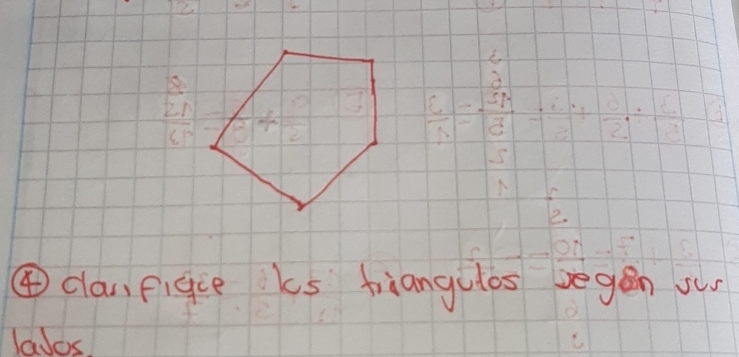 ④ clasifique los triangulos segun sus
lados.